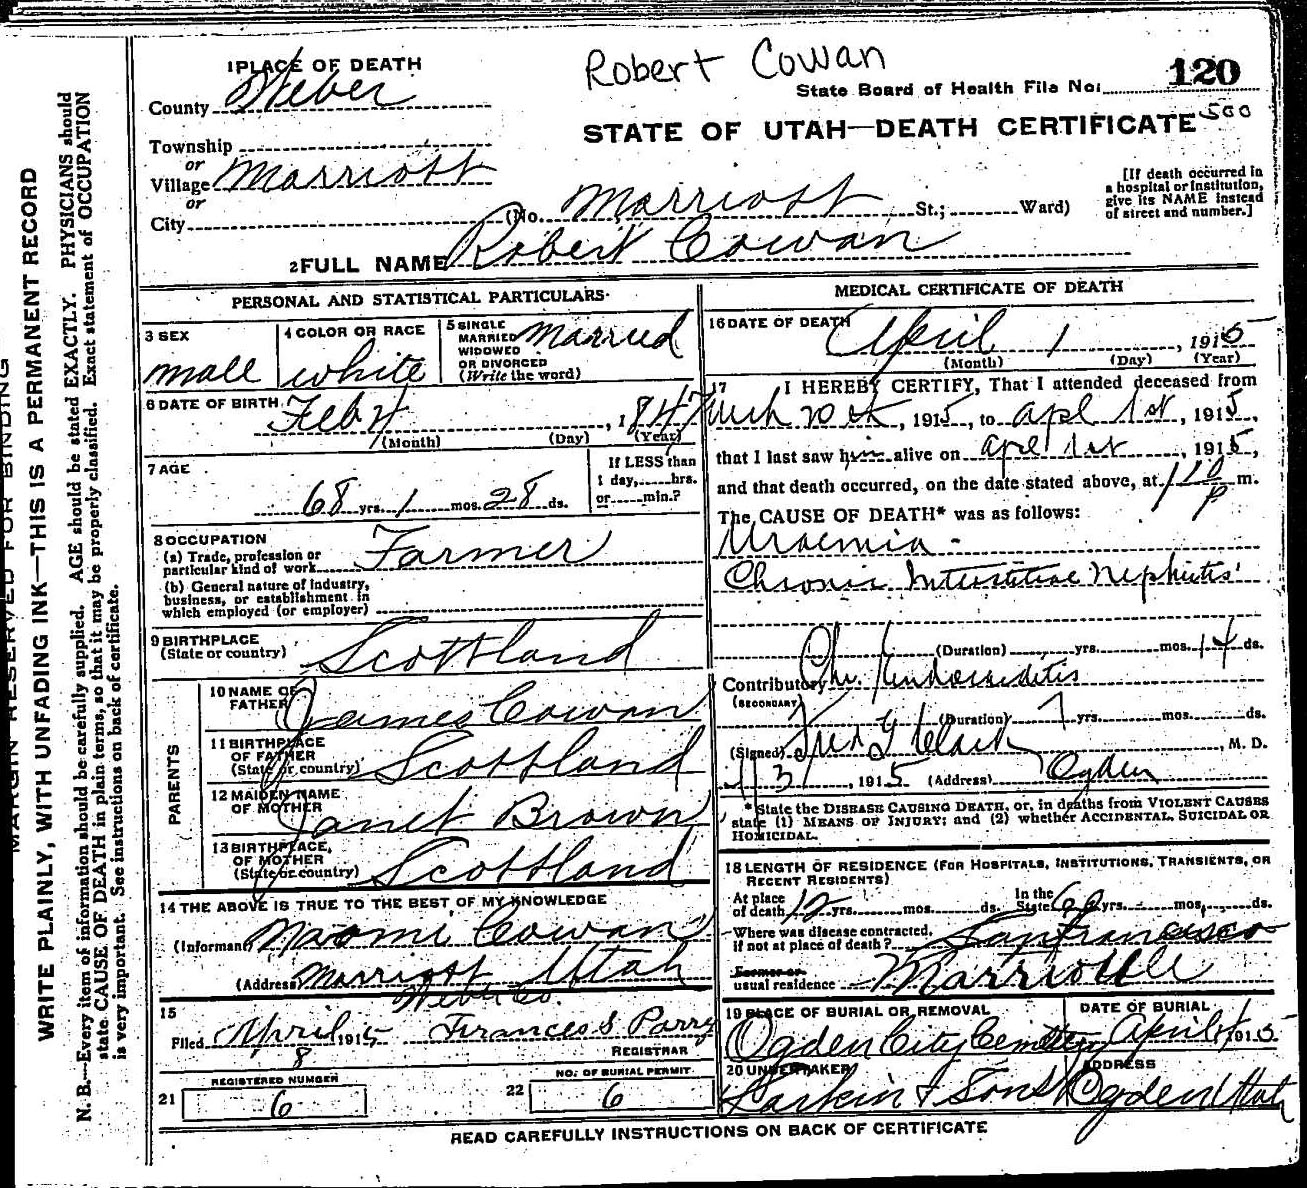 Robert Cowan
120
State Board of Health File No.
STATE OF UTAH—DEATH CERTIFICATE 500
1 PLACE OF DEATH
County Weber
Township
or
Village Marriott
or
City (No. Marriott St.; Ward)
[If death occurred in
a hospital or institution,
give its NAME instead
of street and number.]
2 FULL NAME Robert Cowan
PERSONAL AND STATISTICAL PARTICULARS
3 SEX
male
4 COLOR OR RACE
white
5 SINGLE
MARRIED
WIDOWED
OR DIVORCED
(Write the word)
Married
6 DATE OF BIRTH
Feb 4, 1847
(Month) (Day) (Year)
7 AGE
68 yrs. 1 mos. 28 ds.
If LESS than
1 day, hrs.
or min.?
8 OCCUPATION
(a) Trade, profession or
particular kind of work Farmer
(b) General nature of industry,
business, or establishment in
which employed (or employer)
9 BIRTHPLACE
(State or country) Scottland
PARENTS
10 NAME OF
FATHER James Cowan
11 BIRTHPLACE
OF FATHER
(State or country) Scottland
12 MAIDEN NAME
OF MOTHER Janet Brown
13 BIRTHPLACE
OF MOTHER
(State or country) Scottland
14 THE ABOVE IS TRUE TO THE BEST OF MY KNOWLEDGE
(Informant) Naomi Cowan
(Address) Marriott Utah
Weber Co.
15
Filed April 8 1915 Francis S Parry
REGISTRAR
21 REGISTERED NUMBER
6
22 NO. OF BURIAL PERMIT
6
MEDICAL CERTIFICATE OF DEATH
16 DATE OF DEATH
April 1, 1915
(Month) (Day) (Year)
17 I HEREBY CERTIFY, That I attended deceased from
Mch 20th, 1915, to apl 1st, 1915,
that I last saw him alive on apl 1st, 1915,
and that death occurred, on the date stated above, at 1 p m.
The CAUSE OF DEATH* was as follows:
Uraemia -
Chronic Interstitial Nephritis
(Duration) yrs. mos. 14 ds.
Contributory Chr. Endocarditis
(SECONDARY)
(Duration) yrs. mos. ds.
(Signed) Clark, M. D.
1915 (Address) Ogden
* State the DISEASE CAUSING DEATH, or, in deaths from VIOLENT CAUSES
state (1) MEANS OF INJURY; and (2) whether ACCIDENTAL, SUICIDAL OR
HOMICIDAL.
18 LENGTH OF RESIDENCE (FOR HOSPITALS, INSTITUTIONS, TRANSIENTS, OR
RECENT RESIDENTS)
At place
of death 12 yrs. mos. ds. In the
State 60 yrs. mos. ds.
Where was disease contracted,
if not at place of death? San francisco
Former or
usual residence Marriott
19 PLACE OF BURIAL OR REMOVAL
Ogden City Cemetery
DATE OF BURIAL
April 1915
20 UNDERTAKER
Larkin & Sons
ADDRESS
Ogden Utah
READ CAREFULLY INSTRUCTIONS ON BACK OF CERTIFICATE
MARGIN RESERVED FOR BINDING
WRITE PLAINLY, WITH UNFADING INK—THIS IS A PERMANENT RECORD
N. B.—Every item of information should be carefully supplied. AGE should be stated EXACTLY. PHYSICIANS should
state CAUSE OF DEATH in plain terms, so that it may be properly classified. Exact statement of OCCUPATION
is very important. See instructions on back of certificate.